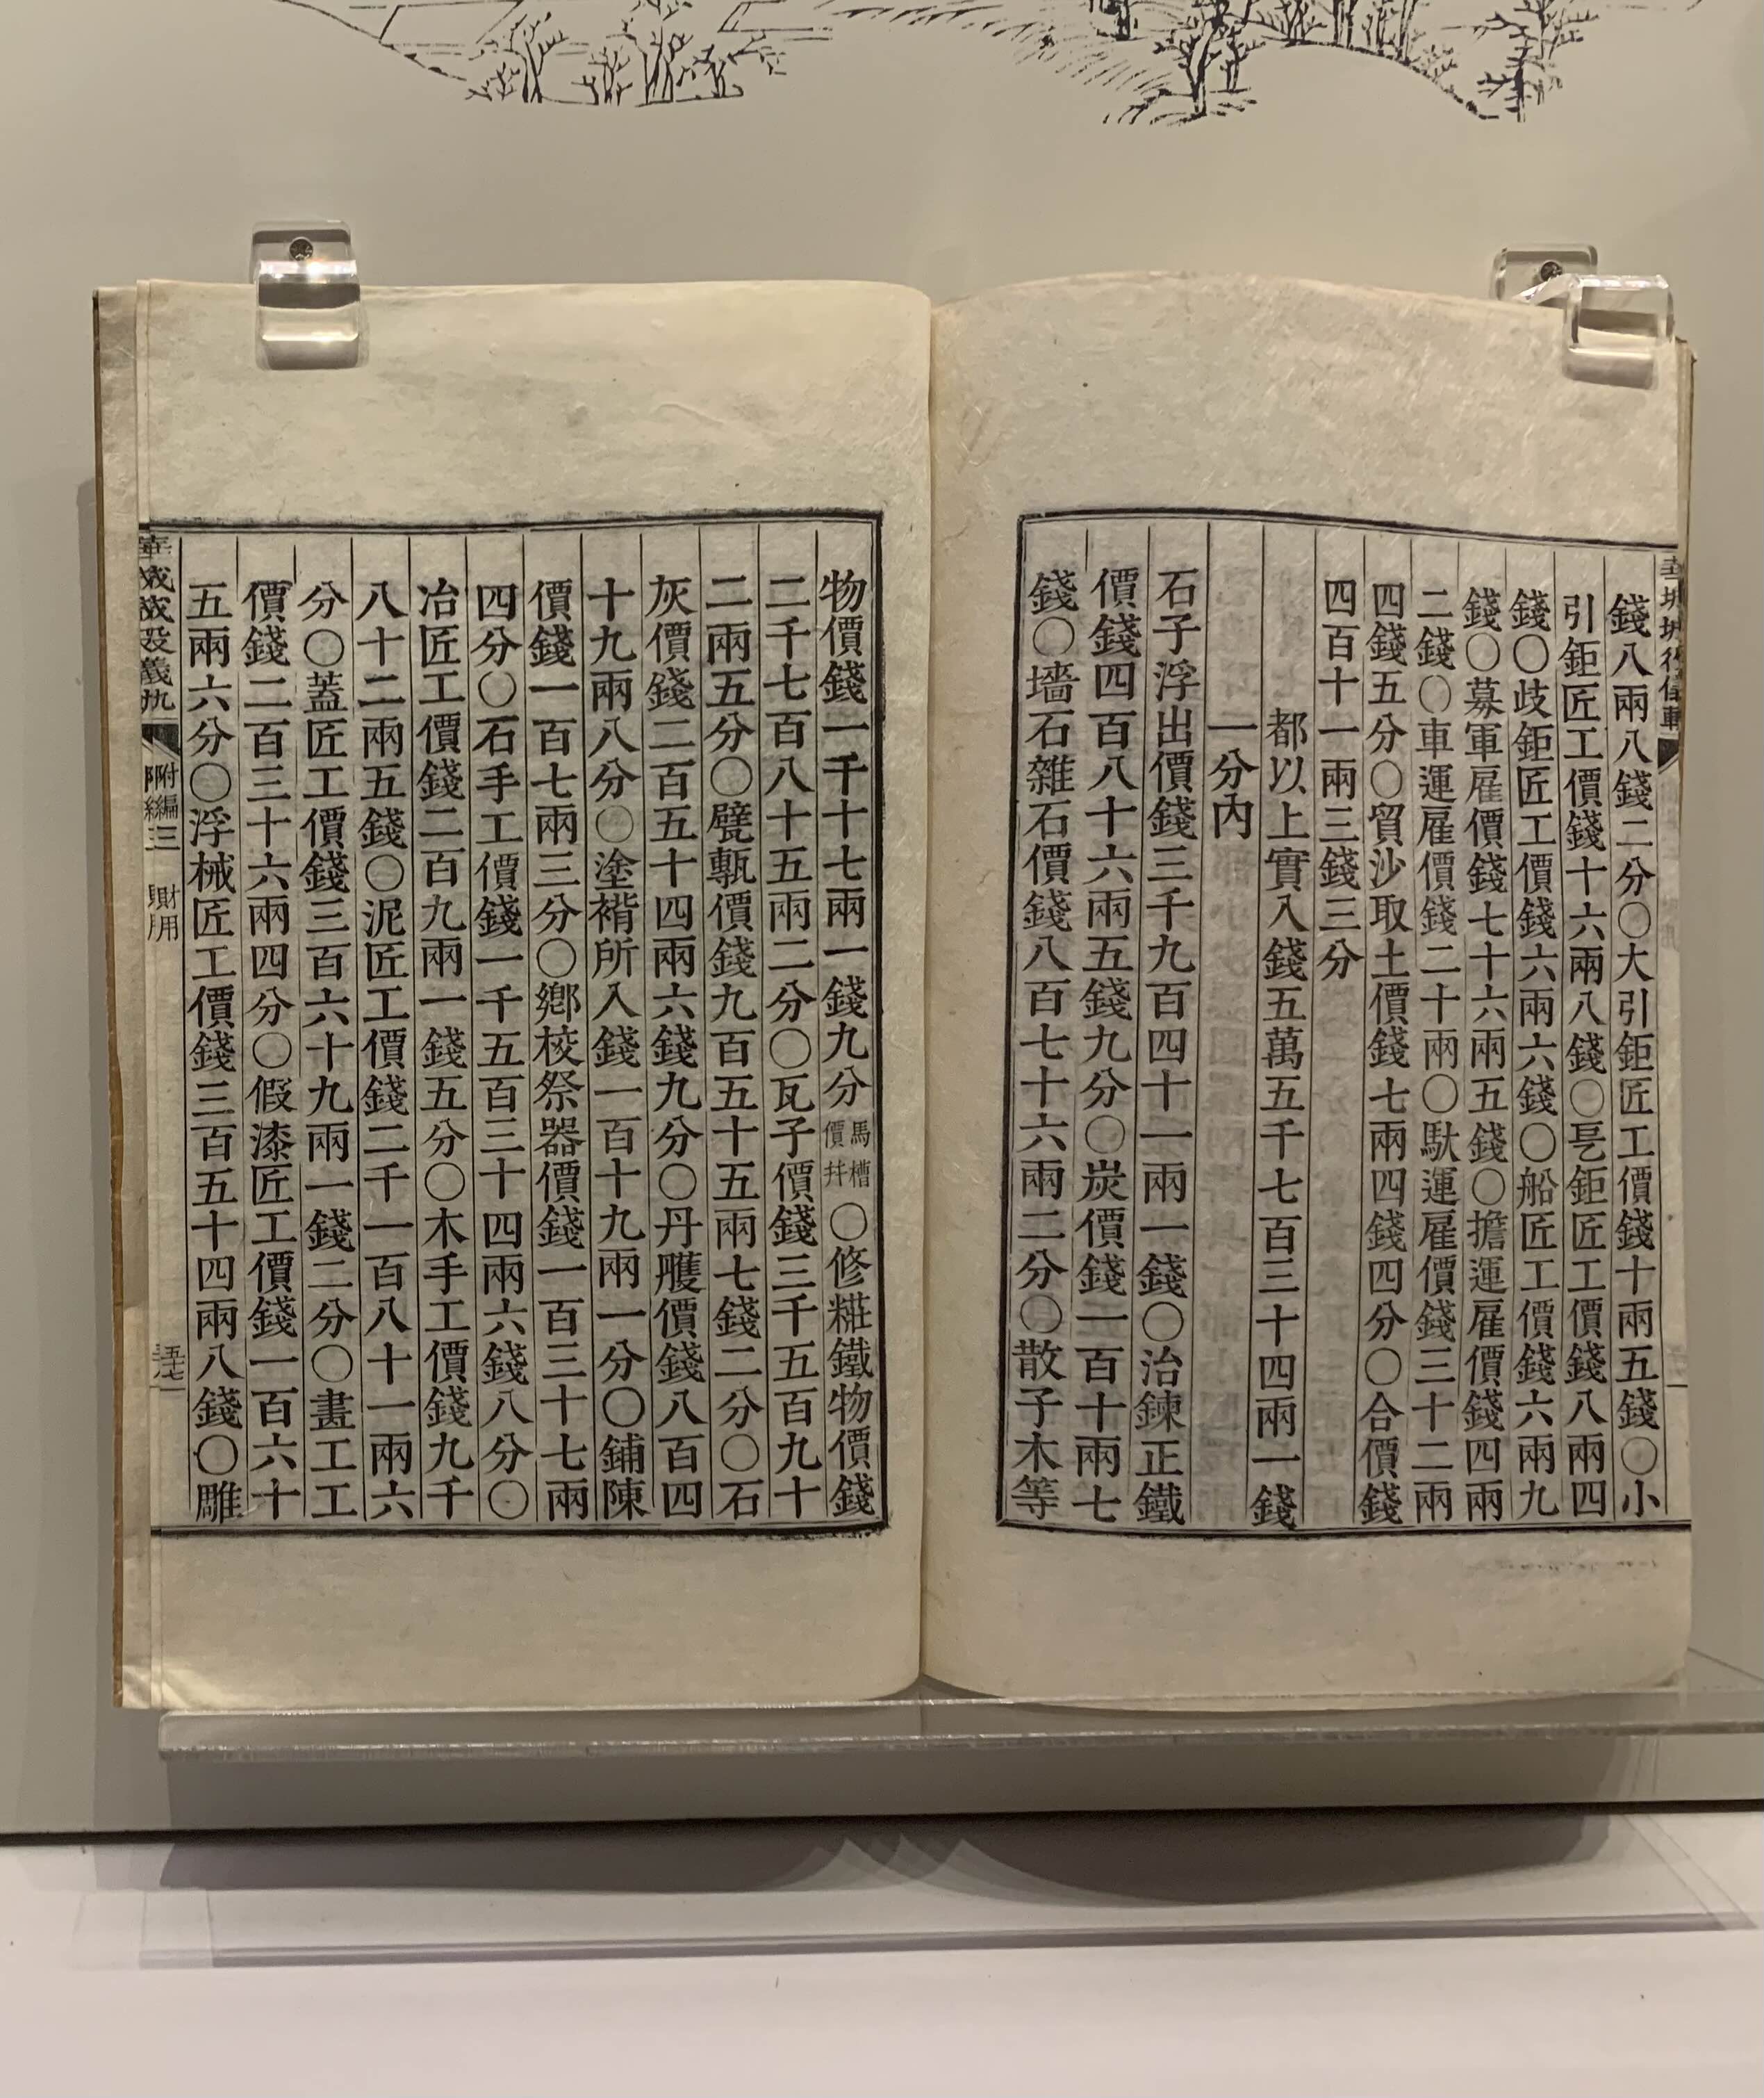 錢八兩八錢二分〇大引鉅匠工價錢十兩五錢〇小
引鉅匠工價錢十六兩八錢〇乬鉅匠工價錢八兩四
錢〇歧鉅匠工價錢六兩六錢〇船匠工價錢六兩九
錢〇募軍雇價錢七十六兩五錢〇擔運雇價錢四兩
二錢〇車運雇價錢二十兩〇馱運雇價錢三十二兩
四錢五分〇貿沙取土價錢七兩四錢四分〇合價錢
四百十一兩三錢三分
都以上實入錢五萬五千七百三十四兩一錢
一分內
石子浮出價錢三千九百四十一兩一錢〇冶鍊正鐵
價錢四百八十六兩五錢九分〇炭價錢一百十兩七
錢〇墻石雜石價錢八百七十六兩二分〇散子木等
物價錢一千十七兩一錢九分馬槽價幷〇修粧鐵物價錢
二千七百八十五兩二分〇瓦子價錢三千五百九十
二兩五分〇甓甎價錢九百五十五兩七錢二分〇石
灰價錢二百五十四兩六錢九分〇丹雘價錢八百四
十九兩八分〇塗褙所入錢一百十九兩一分〇鋪陳
價錢一百七兩三分〇鄕校祭器價錢一百三十七兩
四分〇石手工價錢一千五百三十四兩六錢八分〇
冶匠工價錢二百九兩一錢五分〇木手工價錢九千
八十二兩五錢〇泥匠工價錢二千一百八十一兩六
分〇蓋匠工價錢三百六十九兩一錢二分〇畫工工
價錢二百三十六兩四分〇假漆匠工價錢一百六十
五兩六分〇浮械匠工價錢三百五十四兩八錢〇雕
附編三 財用